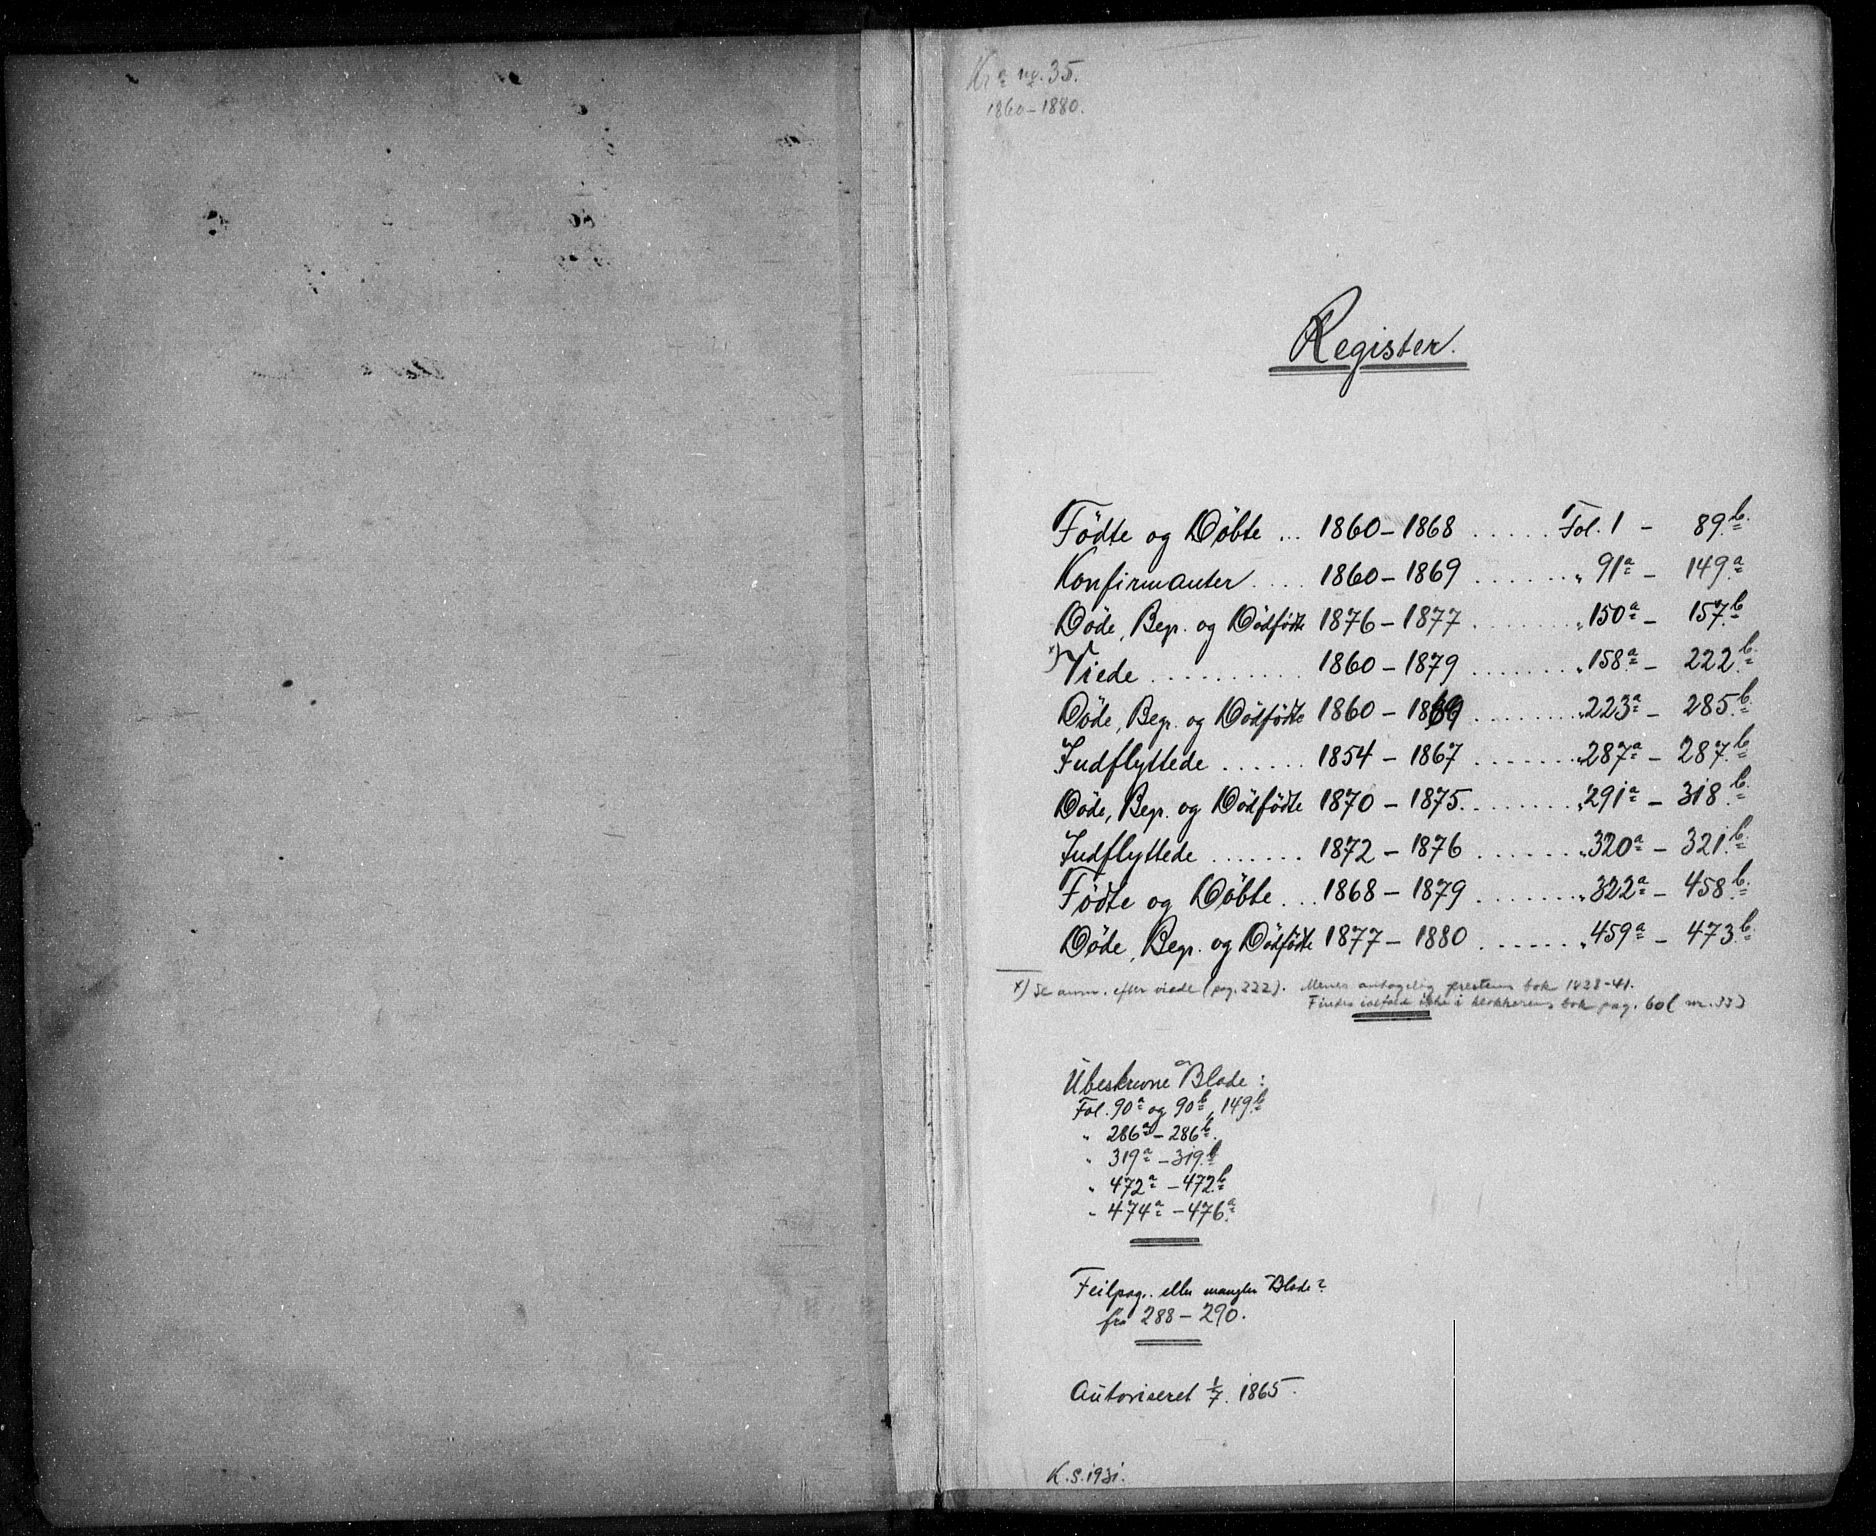 Kr.a no. 35.
1860-1880.
Register.
Födte og Döbte ... 1860-1868 ..... Fol. 1 - 89b.
Konfirmanter .... 1860-1869 ...... " 91a - 149a.
Döde, Begr. og Dödfödte 1876-1877 ....... " 150a - 157b.
x) Viede .......... 1860-1879 ....... " 158a - 222b.
Döde, Begr. og Dödfödte 1860-1869 ....... " 223a - 285b.
Indflyttede ...... 1854-1867 ....... " 287a - 287b.
Döde, Begr. og Dödfödte 1870-1875 ....... " 291a - 318b.
Indflyttede ....... 1872-1876 ...... " 320a - 321b.
Födte og Döbte ... 1868-1879 ....... " 322a - 458b.
Döde, Begr. og Dödfödte 1877-1880 ...... " 459a - 473b.
x) Se anm. efter viede (pag. 222). Menes antagelig prestens bok 1828-41.
Findes ialfald ikke i klokkerens bok pag. 60 ( nr. 33)
Ubeskrevne Blade:
Fol. 90a og 90b, 149b
" 286a - 286b.
" 319a - 319b
" 472a - 472b
" 474a - 476a.
Feilpag. eller mangler Blade?
fra 288-290.
Autoriseret 1/7. 1865.
K.S. 1931.